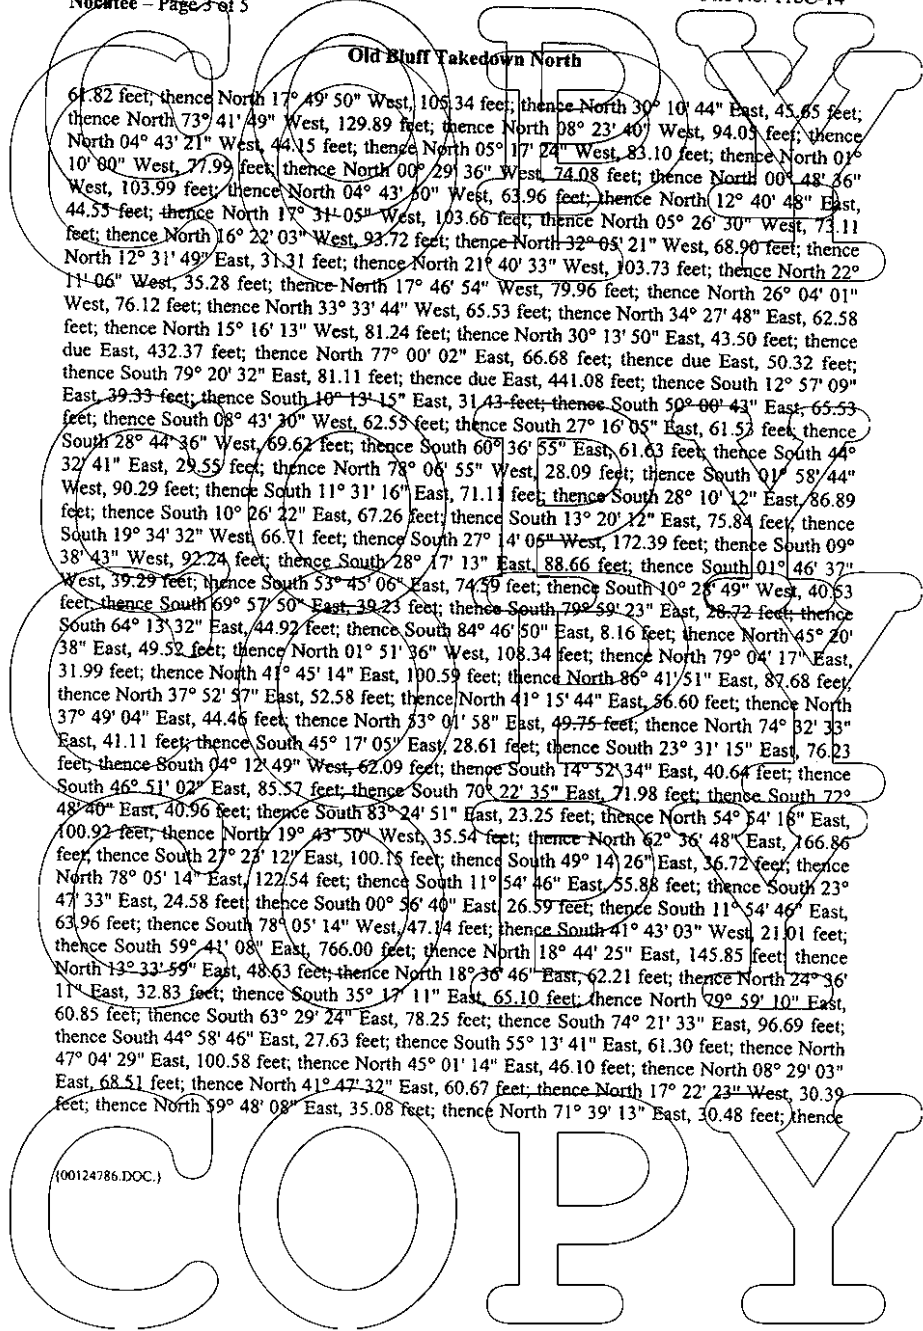 Nocatee – Page 3 of 5
Old Bluff Takedown North
61.82 feet; thence North 17° 49' 50" West, 105.34 feet; thence North 30° 10' 44" East, 45.65 feet;
thence North 73° 41' 49" West, 129.89 feet; thence North 08° 23' 40" West, 94.05 feet; thence
North 04° 43' 21" West, 44.15 feet; thence North 05° 17' 24" West, 83.10 feet; thence North 01°
10' 00" West, 77.99 feet; thence North 00° 29' 36" West, 74.08 feet; thence North 00° 48' 36"
West, 103.99 feet; thence North 04° 43' 50" West, 63.96 feet; thence North 12° 40' 48" East,
44.55 feet; thence North 17° 31' 05" West, 103.66 feet; thence North 05° 26' 30" West, 73.11
feet; thence North 16° 22' 03" West, 93.72 feet; thence North 32° 05' 21" West, 68.90 feet; thence
North 12° 31' 49" East, 31.31 feet; thence North 21° 40' 33" West, 103.73 feet; thence North 22°
11' 06" West, 35.28 feet; thence North 17° 46' 54" West, 79.96 feet; thence North 26° 04' 01"
West, 76.12 feet; thence North 33° 33' 44" West, 65.53 feet; thence North 34° 27' 48" East, 62.58
feet; thence North 15° 16' 13" West, 81.24 feet; thence North 30° 13' 50" East, 43.50 feet; thence
due East, 432.37 feet; thence North 77° 00' 02" East, 66.68 feet; thence due East, 50.32 feet;
thence South 79° 20' 32" East, 81.11 feet; thence due East, 441.08 feet; thence South 12° 57' 09"
East, 39.33 feet; thence South 10° 13' 15" East, 31.43 feet; thence South 50° 00' 43" East, 65.53
feet; thence South 08° 43' 30" West, 62.55 feet; thence South 27° 16' 05" East, 61.53 feet; thence
South 28° 44' 36" West, 69.62 feet; thence South 60° 36' 55" East, 61.63 feet; thence South 44°
32' 41" East, 29.55 feet; thence North 78° 06' 55" West, 28.09 feet; thence South 01° 58' 44"
West, 90.29 feet; thence South 11° 31' 16" East, 71.11 feet; thence South 28° 10' 12" East, 86.89
feet; thence South 10° 26' 22" East, 67.26 feet; thence South 13° 20' 12" East, 75.84 feet, thence
South 19° 34' 32" West, 66.71 feet; thence South 27° 14' 05" West, 172.39 feet; thence South 09°
38' 43" West, 92.24 feet; thence South 28° 17' 13" East, 88.66 feet; thence South 01° 46' 37"
West, 39.29 feet; thence South 53° 45' 06" East, 74.59 feet; thence South 10° 28' 49" West, 40.53
feet; thence South 69° 57' 50" East, 39.23 feet; thence South 79° 59' 23" East, 28.72 feet; thence
South 64° 13' 32" East, 44.92 feet; thence South 84° 46' 50" East, 8.16 feet; thence North 45° 20'
38" East, 49.52 feet; thence North 01° 51' 36" West, 108.34 feet; thence North 79° 04' 17" East,
31.99 feet; thence North 41° 45' 14" East, 100.59 feet; thence North 86° 41' 51" East, 87.68 feet;
thence North 37° 52' 57" East, 52.58 feet; thence North 41° 15' 44" East, 56.60 feet; thence North
37° 49' 04" East, 44.46 feet; thence North 53° 01' 58" East, 49.75 feet; thence North 74° 32' 33"
East, 41.11 feet; thence South 45° 17' 05" East, 28.61 feet; thence South 23° 31' 15" East, 76.23
feet; thence South 04° 12' 49" West, 62.09 feet; thence South 14° 52' 34" East, 40.64 feet; thence
South 46° 51' 02" East, 85.57 feet; thence South 70° 22' 35" East, 71.98 feet; thence South 72°
48' 40" East, 40.96 feet; thence South 83° 24' 51" East, 23.25 feet; thence North 54° 54' 18" East,
100.92 feet; thence North 19° 43' 50" West, 35.54 feet; thence North 62° 36' 48" East, 166.86
feet; thence South 27° 23' 12" East, 100.15 feet; thence South 49° 14' 26" East, 36.72 feet; thence
North 78° 05' 14" East, 122.54 feet; thence South 11° 54' 46" East, 55.88 feet; thence South 23°
47' 33" East, 24.58 feet; thence South 00° 56' 40" East, 26.59 feet; thence South 11° 54' 46" East,
63.96 feet; thence South 78° 05' 14" West, 47.14 feet; thence South 41° 43' 03" West, 21.01 feet;
thence South 59° 41' 08" East, 766.00 feet; thence North 18° 44' 25" East, 145.85 feet; thence
North 13° 33' 59" East, 48.63 feet; thence North 18° 36' 46" East, 62.21 feet; thence North 24° 36'
11" East, 32.83 feet; thence South 35° 17' 11" East, 65.10 feet; thence North 79° 59' 10" East,
60.85 feet; thence South 63° 29' 24" East, 78.25 feet; thence South 74° 21' 33" East, 96.69 feet;
thence South 44° 58' 46" East, 27.63 feet; thence South 55° 13' 41" East, 61.30 feet; thence North
47° 04' 29" East, 100.58 feet; thence North 45° 01' 14" East, 46.10 feet; thence North 08° 29' 03"
East, 68.51 feet; thence North 41° 47' 32" East, 60.67 feet; thence North 17° 22' 23" West, 30.39
feet; thence North 59° 48' 08" East, 35.08 feet; thence North 71° 39' 13" East, 30.48 feet; thence
{00124786.DOC.}
COPY
COPY
COPY
COPY
COPY